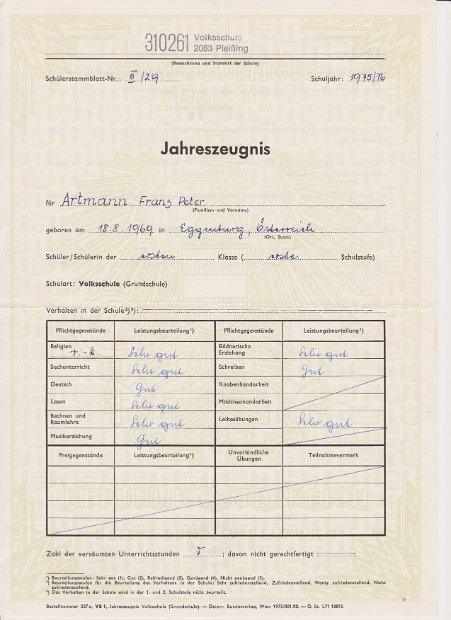 310261 Volksschule
2083 Pleißing
(Bezeichnung und Standort der Schule)
Schülerstammblatt-Nr.: III/29 Schuljahr: 1975/76
Jahreszeugnis
für Artmann Franz Peter
(Familien- und Vorname)
geboren am 18.8.1969 in Eggenburg, Österreich
(Ort, Staat)
Schüler/Schülerin der ersten Klasse (erste Schulstufe)
Schulart: Volksschule (Grundschule)
Verhalten in der Schule²)³):
Pflichtgegenstände Leistungsbeurteilung¹) Pflichtgegenstände Leistungsbeurteilung¹)
Religion r.-k. Sehr gut Bildnerische Erziehung Sehr gut
Sachunterricht Sehr gut Schreiben Gut
Deutsch Gut Knabenhandarbeit
Lesen Sehr gut Mädchenhandarbeit
Rechnen und Raumlehre Sehr gut Leibesübungen Sehr gut
Musikerziehung Gut
Freigegenstände Leistungsbeurteilung¹) Unverbindliche Übungen Teilnahmevermerk
Zahl der versäumten Unterrichtsstunden ; davon nicht gerechtfertigt
¹) Beurteilungsstufen: Sehr gut (1), Gut (2), Befriedigend (3), Genügend (4), Nicht genügend (5).
²) Beurteilungsstufen für die Beurteilung des Verhaltens in der Schule: Sehr zufriedenstellend, Zufriedenstellend, Wenig zufriedenstellend, Nicht
zufriedenstellend.
³) Das Verhalten in der Schule wird in der 1. und 2. Schulstufe nicht beurteilt.
Bestellnummer 237a, VS 1, Jahreszeugnis Volksschule (Grundschule). — Österr. Bundesverlag, Wien 1975/001.00. — Ö. St. L71 18815